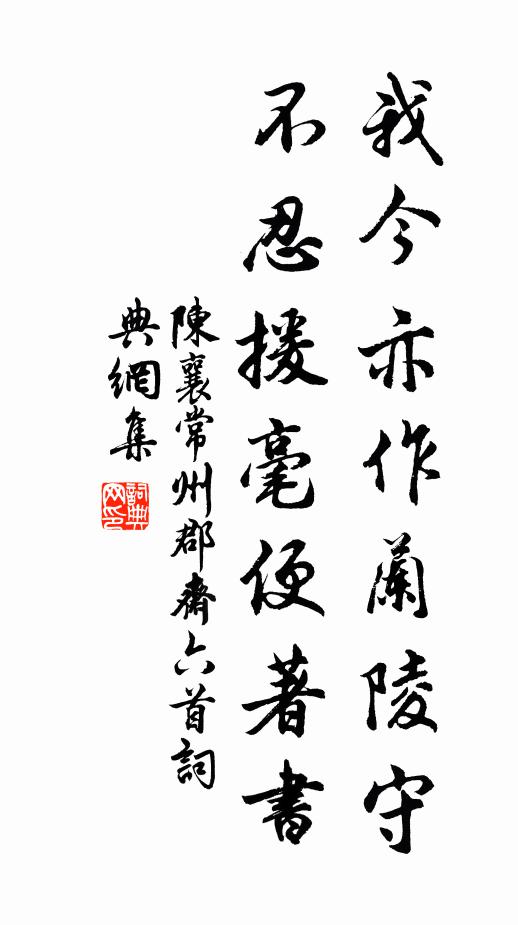 我今亦作蘭陵守
不忍援毫便著書
陳襄常州郡齋六首詞
典網集
詞典網印